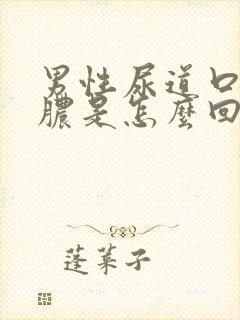 男性尿道口
膿是怎麼回
蓬萊子